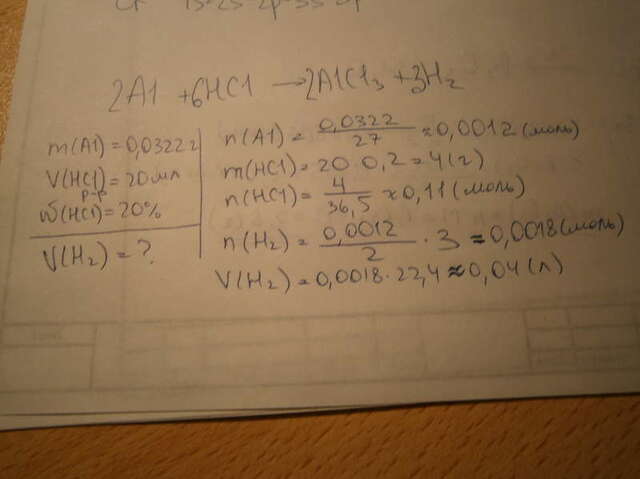 2Al + 6HCl → 2AlCl₃ + 3H₂
m(Al) = 0,0322 г
V(HCl) = 20 мл
р-р
ω(HCl) = 20%
V(H₂) = ?
n(Al) = 0,0322 / 27 ≈ 0,0012 (моль)
m(HCl) = 20 · 0,2 = 4 (г)
n(HCl) = 4 / 36,5 ≈ 0,11 (моль)
n(H₂) = 0,0012 / 2 · 3 ≈ 0,0018 (моль)
V(H₂) = 0,0018 · 22,4 ≈ 0,04 (л)